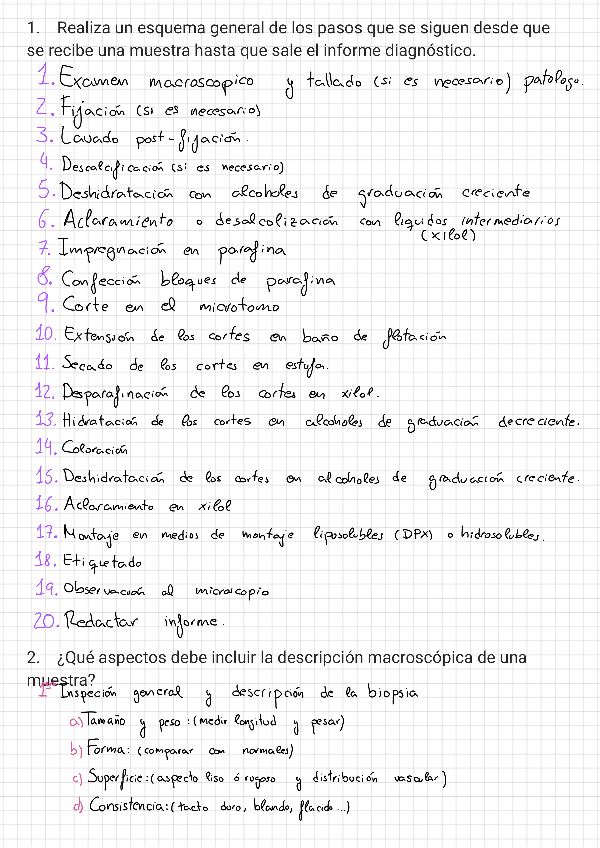 1. Realiza un esquema general de los pasos que se siguen desde que
se recibe una muestra hasta que sale el informe diagnóstico.
1. Examen macroscopico y tallado (si es necesario) patologo.
2. Fijación (si es necesario)
3. Lavado post-fijación.
4. Descalcificación (si es necesario)
5. Deshidratación con alcoholes de graduación creciente
6. Aclaramiento o desalcolización con liquidos intermediarios
(xilol)
7. Impregnación en parafina
8. Confección bloques de parafina
9. Corte en el microtomo
10. Extensión de los cortes en baño de flotación
11. Secado de los cortes en estufa.
12. Desparafinación de los cortes en xilol.
13. Hidratación de los cortes en alcoholes de graduación decreciente.
14. Coloración
15. Deshidratación de los cortes en alcoholes de graduación creciente.
16. Aclaramiento en xilol
17. Montaje en medios de montaje liposolubles (DPX) o hidrosolubles.
18. Etiquetado
19. Observación al microscopio
20. Redactar informe.
2. ¿Qué aspectos debe incluir la descripción macroscópica de una
muestra?
1º Inspección general y descripción de la biopsia
a) Tamaño y peso: (medir longitud y pesar)
b) Forma: (comparar con normales)
c) Superficie: (aspecto liso ó rugoso y distribución vascular)
d) Consistencia: (tacto duro, blando, flacido...)